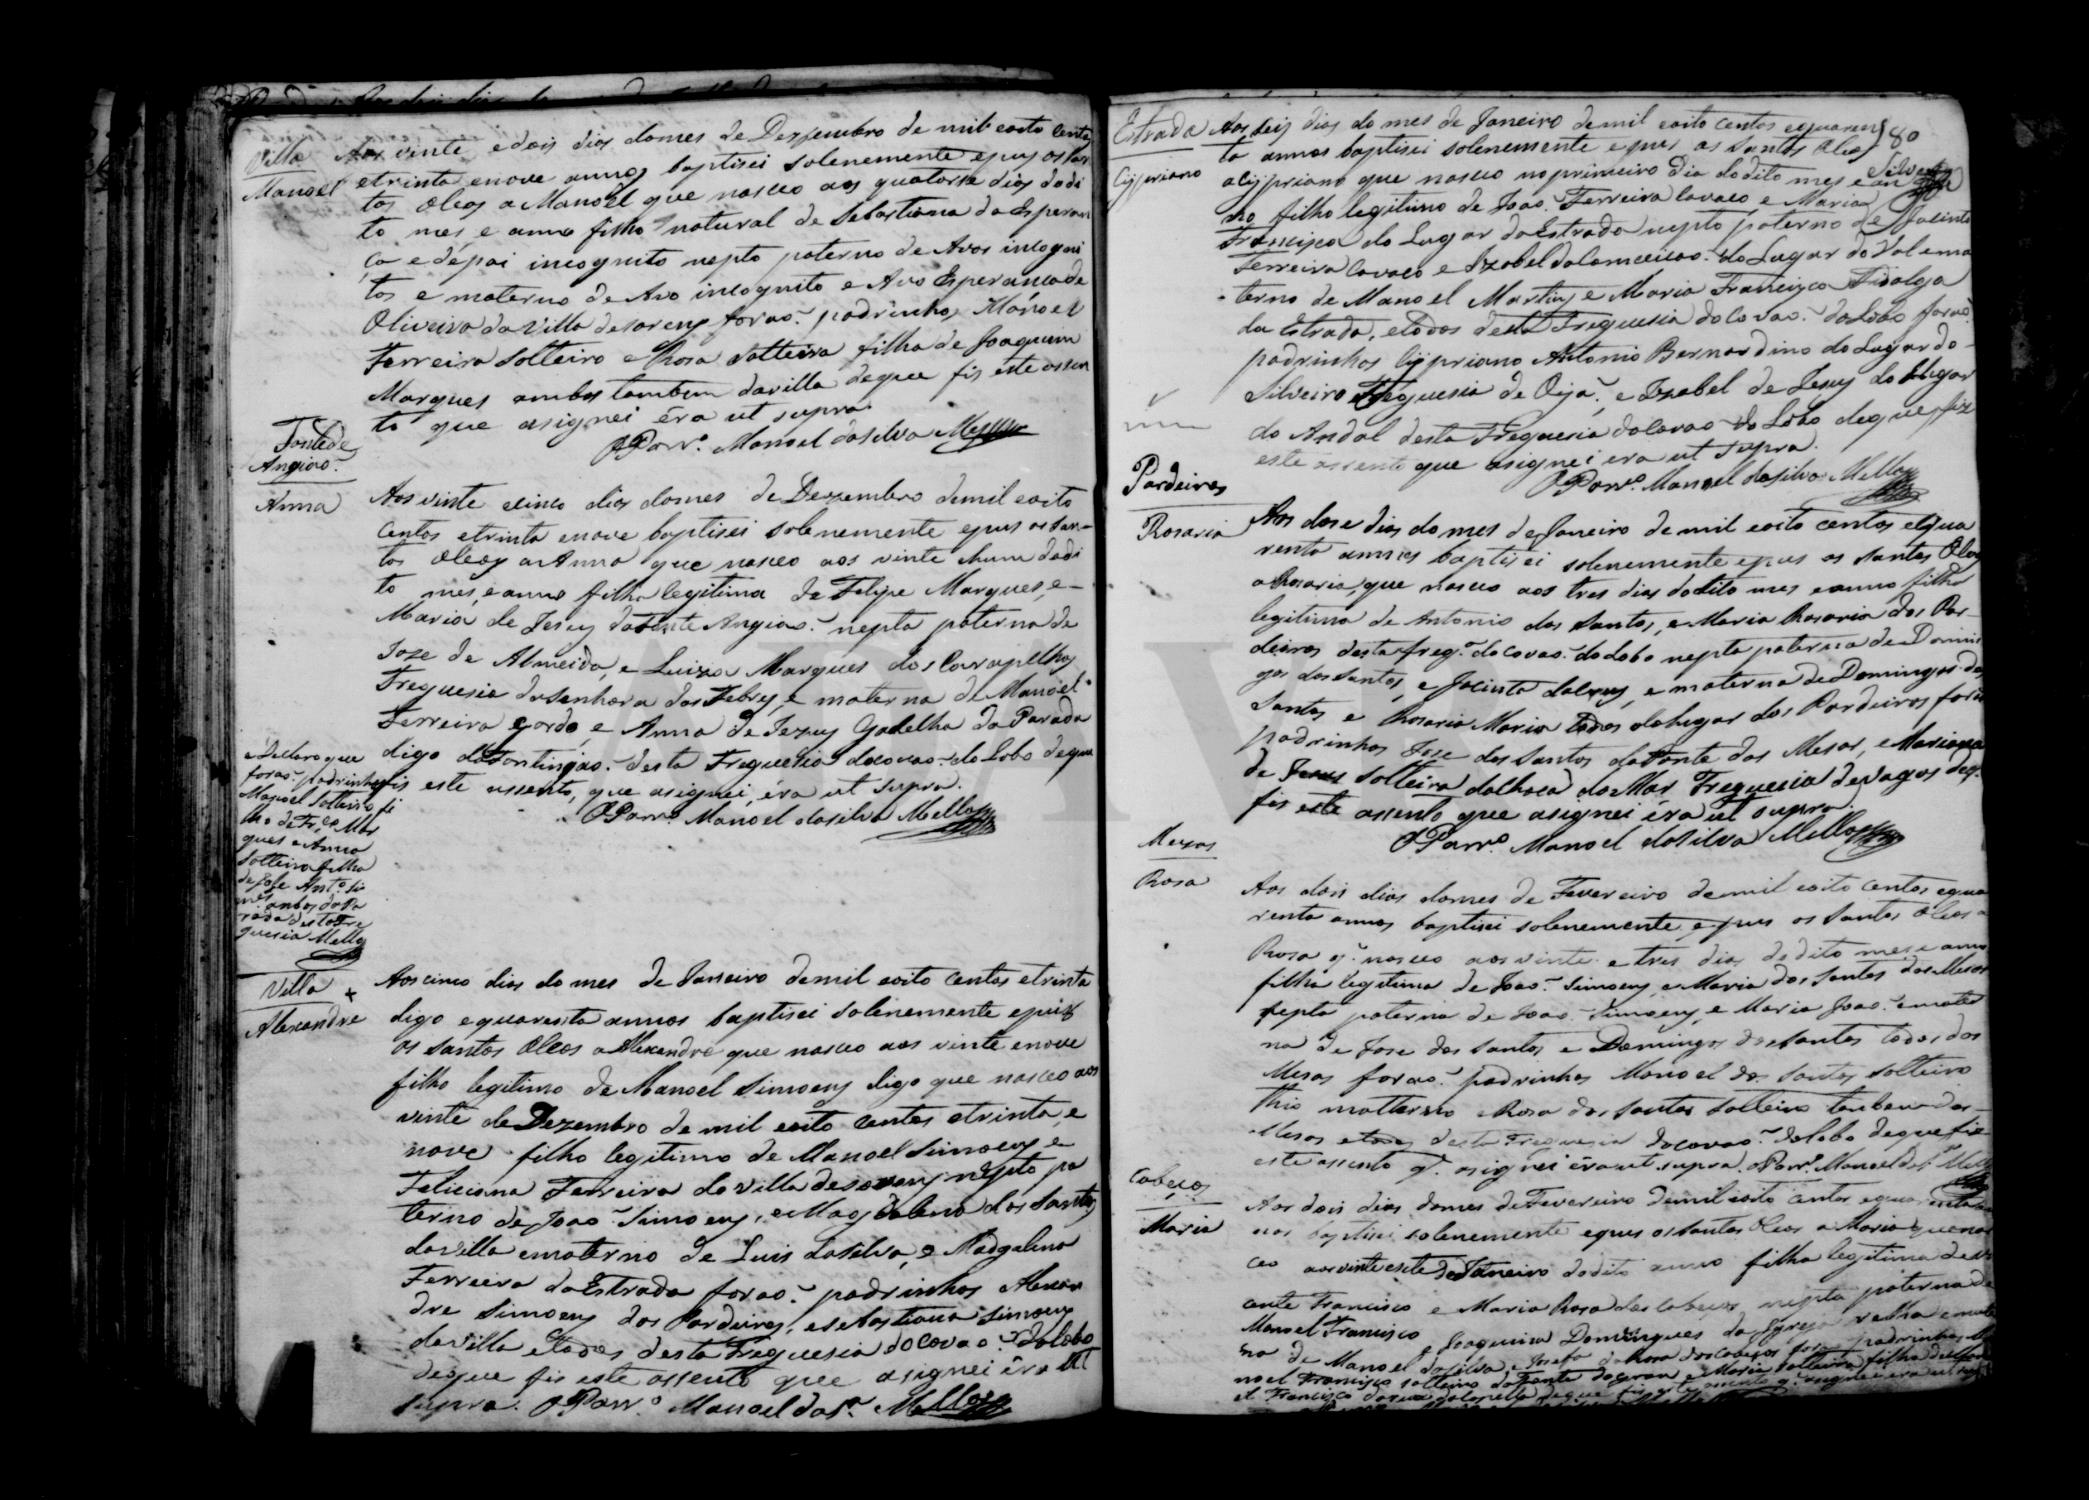 Villa
Manoel
Aos vinte e dois dias do mes de Dezembro de mil eoito centos
etrinta enove annos baptisei solenemente epus os San
tos Oleos a Manoel que nasceo aos quatorse dias do di
to mes, e anno filho natural de Sebastiana da Esperan
ça e depai incognito nepto paterno de Avos incogni
tos e materno de Avo incognito e Avo Esperança de
Oliveira da Villa de Soreny forao padrinhos Manoel
Ferreira Solteiro e Rosa Solteira filha de Joaquim
Marques ambos tambem davilla deque fis este assen
to que asignei éra ut supra
O Parr.º Manoel dasilva Mello
Fonte de
Angiao
Anna
Aos vinte ecinco dias domes de Dezembro demil eoito
centos etrinta enove baptisei solenemente epus os San
tos Oleos a Anna que nasceo aos vinte ehum do di
to mes, e anno filha legitima de Felipe Marques, e
Maria de Jesus da Fonte Angiao nepta paterna de
Joze de Almeida, e Luiza Marques dos Carapelhos
Freguesia da Senhora das Febres, e materna de Manoel
Ferreira gordo, e Anna de Jezus Gadelha da Parada
digo da Fontinjao desta Freguesia docovao do Lobo deque
fis este assento, que asignei, éra ut supra.
O Parr.º Manoel dasilva Mello
e Declaro que
forao padrinhos
Manoel Solteiro fi
lho de Fr.co Mar
ques e Anna
Solteira filha
de Joze Ant.º Si
ambos da Pa
rada desta Fre
guesia Mello
Villa
Alexandre
Aos cinco dias do mes de Janeiro demil eoito centos etrinta
digo equarenta annos baptisei Solenemente epus
os Santos Oleos a Alexandre que nasceo aos vinte enove
filho legitimo de Manoel Simoens digo que nasceo aos
vinte de Dezembro de mil eoito centos etrinta, e
nove filho legitimo de Manoel Simoens e
Feliciana Ferreira da villa de Soreny nepto pa
terno de Joao Simoens, e Magdalena dos Santos
davilla ematerno de Luis dasilva, e Madgalena
Ferreira da Estrada forao padrinhos Alexan
dre Simoens dos Pardeiros, e Sebastiana Simoens
davilla etodos desta Freguesia docovao dolobo
deque fis este assento que asignei éra ut
supra. O Parr.º Manoel das.ª Mello
80
Silveiro
Estrada
Cypriano
Aos seis dias do mes de Janeiro demil eoito centos equaren
ta annos baptisei solenemente epus os Santos Oleos
a Cypriano que nasceo no primeiro dia do dito mes e an
no filho legitimo de Joao Ferreira Cavaco, e Maria
Francisca do Lugar da Estrada nepto paterno de Jacinto
Ferreira Cavaco e Izabel da Conceicao do Lugar do Val ema
terno de Manoel Martins e Maria Francisca Fidalga
da Estrada, etodos desta Freguesia do Covao do Lobo forao
padrinhos Cypriano Antonio Bernardino do Lugar do
Silveiro Freguesia de Oijã, e Izabel de Jesus do Lugar
do Andal desta Freguesia do Covao do Lobo deque fiz
este assento que asignei era ut supra.
O Parr.º Manoel dasilva Mello
Pardeiros
Rosaria
Aos dose dias do mes de Janeiro de mil eoito centos equa
renta annos baptisei solenemente epus os Santos Oleos
a Rosaria, que nasceo aos tres dias do dito mes e anno filha
legitima de Antonio dos Santos, e Maria Rosaria dos Par
deiros desta freg.ª docovao do Lobo nepta paterna de Domin
gos dos Santos, e Jacinta dacruz, e materna de Domingos dos
Santos e Rosaria Maria todos do lugar dos Pardeiros forao
padrinhos Joze dos Santos da Fonte das Mesas, e Mariana
de Jesus Solteira da Lhoca do Mar Freguesia de Vagos deq.
fis este assento que asignei éra ut supra.
O Parr.º Manoel dasilva Mello
Mezas
Rosa
Aos dois dias domes de Fevereiro demil eoito centos equa
renta annos baptisei solenemente, epus os Santos Oleos a
Rosa q. nasceo aos vinte e tres dias do dito mes e anno
filha legitima de Joao Simoens, e Maria dos Santos das Mesas
nepta paterna de Joao Simoens, e Maria Joao emater
na de Jose dos Santos e Domingas dos Santos todos das
Mesas forao padrinhos Manoel dos Santos Solteiro
thio matterno e Rosa dos Santos Solteira tambem das
Mesas e todos desta Freguesia docovao dolobo deque fiz
este assento q. asignei éra ut supra. O Parr.º Manoel das.ª Mello
Cabeços
Maria
Aos dois dias domes de Fevereiro demil eoito centos equarenta an
nos baptisei solenemente epus os Santos Oleos a Maria que nas
ceo aos vinte esete de Janeiro do dito anno filha legitima de Vi
cente Francisco e Maria Rosa dos Cabeços nepta paterna de
Manoel Francisco e Joaquina Domingues da Igreja velha e mater
na de Manoel dasilva e Josefa da Rosa dos Cabeços forao padrinhos Ma
noel Francisco solteiro da Fonte e Maria Solteira filha de